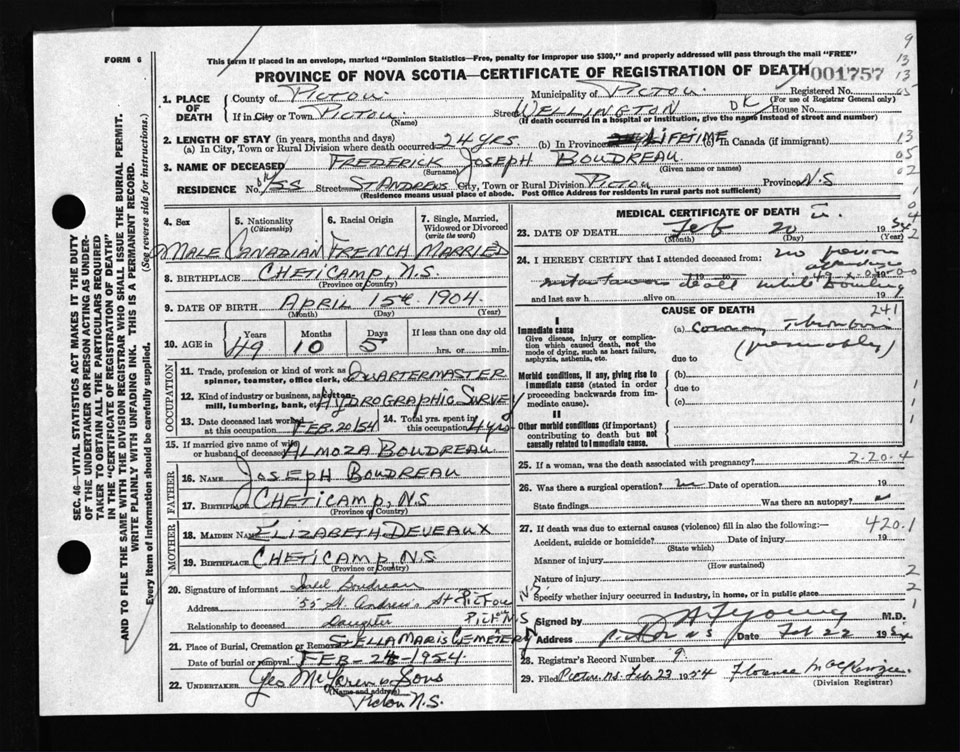 FORM 6
This form if placed in an envelope, marked "Dominion Statistics—Free, penalty for improper use $300," and properly addressed will pass through the mail "FREE"
PROVINCE OF NOVA SCOTIA—CERTIFICATE OF REGISTRATION OF DEATH 001757
Registered No.
(For use of Registrar General only)
1. PLACE OF DEATH
County of PICTOU Municipality of PICTOU
If in City or Town PICTOU Street WELLINGTON DK House No.
(Name) (If death occurred in a hospital or institution, give the name instead of street and number)
2. LENGTH OF STAY (in years, months and days)
(a) In City, Town or Rural Division where death occurred 24 YRS. (b) In Province LIFETIME (c) In Canada (if immigrant)
3. NAME OF DECEASED FREDERICK JOSEPH BOUDREAU
(Surname) (Given name or names)
RESIDENCE No. 55 Street ST ANDREWS City, Town or Rural Division PICTOU Province N.S
(Residence means usual place of abode. Post Office Address for residents in rural parts not sufficient)
4. Sex 5. Nationality (Citizenship) 6. Racial Origin 7. Single, Married, Widowed or Divorced (write the word)
MALE CANADIAN FRENCH MARRIED
8. BIRTHPLACE CHETICAMP, N.S.
(Province or Country)
9. DATE OF BIRTH APRIL 15th 1904
(Month) (Day) (Year)
10. AGE in Years Months Days If less than one day old
49 10 5 hrs. or min.
OCCUPATION
11. Trade, profession or kind of work as spinner, teamster, office clerk, etc. QUARTERMASTER
12. Kind of industry or business, as cotton mill, lumbering, bank, etc. HYDROGRAPHIC SURVEY
13. Date deceased last worked at this occupation FEB. 20/54 14. Total yrs. spent in this occupation 4 yrs
15. If married give name of wife or husband of deceased ALMOZA BOUDREAU
FATHER
16. NAME JOSEPH BOUDREAU
17. BIRTHPLACE CHETICAMP, N.S
(Province or Country)
MOTHER
18. MAIDEN NAME ELIZABETH DEVEAUX
19. BIRTHPLACE CHETICAMP, N.S
(Province or Country)
20. Signature of informant Boudreau
Address 55 St. Andrew's St PICTOU N.S
Relationship to deceased Daughter PICTOU N.S
21. Place of Burial, Cremation or Removal STELLA MARIS CEMETERY
Date of burial or removal FEB-24-1954
22. UNDERTAKER Geo McLaren & Sons
(Name and address)
Pictou N.S.
MEDICAL CERTIFICATE OF DEATH
23. DATE OF DEATH Feb 20 1954
(Month) (Day) (Year)
24. I HEREBY CERTIFY that I attended deceased from: no previous
death while bowling
and last saw h alive on 19
CAUSE OF DEATH 241
I
Immediate cause
Give disease, injury or complication which caused death, not the mode of dying, such as heart failure, asphyxia, asthenia, etc.
(a) Coronary Thrombosis
(presumably)
due to
Morbid conditions, if any, giving rise to immediate cause (stated in order proceeding backwards from immediate cause).
(b)
due to
(c)
II
Other morbid conditions (if important) contributing to death but not causally related to immediate cause.
25. If a woman, was the death associated with pregnancy? 2-20-4
26. Was there a surgical operation? no Date of operation 19
State findings Was there an autopsy?
27. If death was due to external causes (violence) fill in also the following:— 420.1
Accident, suicide or homicide? Date of injury 19
(State which)
Manner of injury
(How sustained)
Nature of injury
Specify whether injury occurred in industry, in home, or in public place
Signed by Young M.D.
Address Pictou NS Date Feb 22 1954
28. Registrar's Record Number 9
29. Filed Pictou N.S. Feb 23 1954 Florence MacKenzie
(Division Registrar)
SEC. 46—VITAL STATISTICS ACT MAKES IT THE DUTY OF THE UNDERTAKER OR PERSON ACTING AS UNDERTAKER TO OBTAIN ALL THE PARTICULARS REQUIRED IN THE "CERTIFICATE OF REGISTRATION OF DEATH"
AND TO FILE THE SAME WITH THE DIVISION REGISTRAR WHO SHALL ISSUE THE BURIAL PERMIT.
WRITE PLAINLY WITH UNFADING INK. THIS IS A PERMANENT RECORD.
Every item of information should be carefully supplied. (See reverse side for instructions.)
9
13
13
05
13
05
02
1
0
4
2
1
1
2
2
1